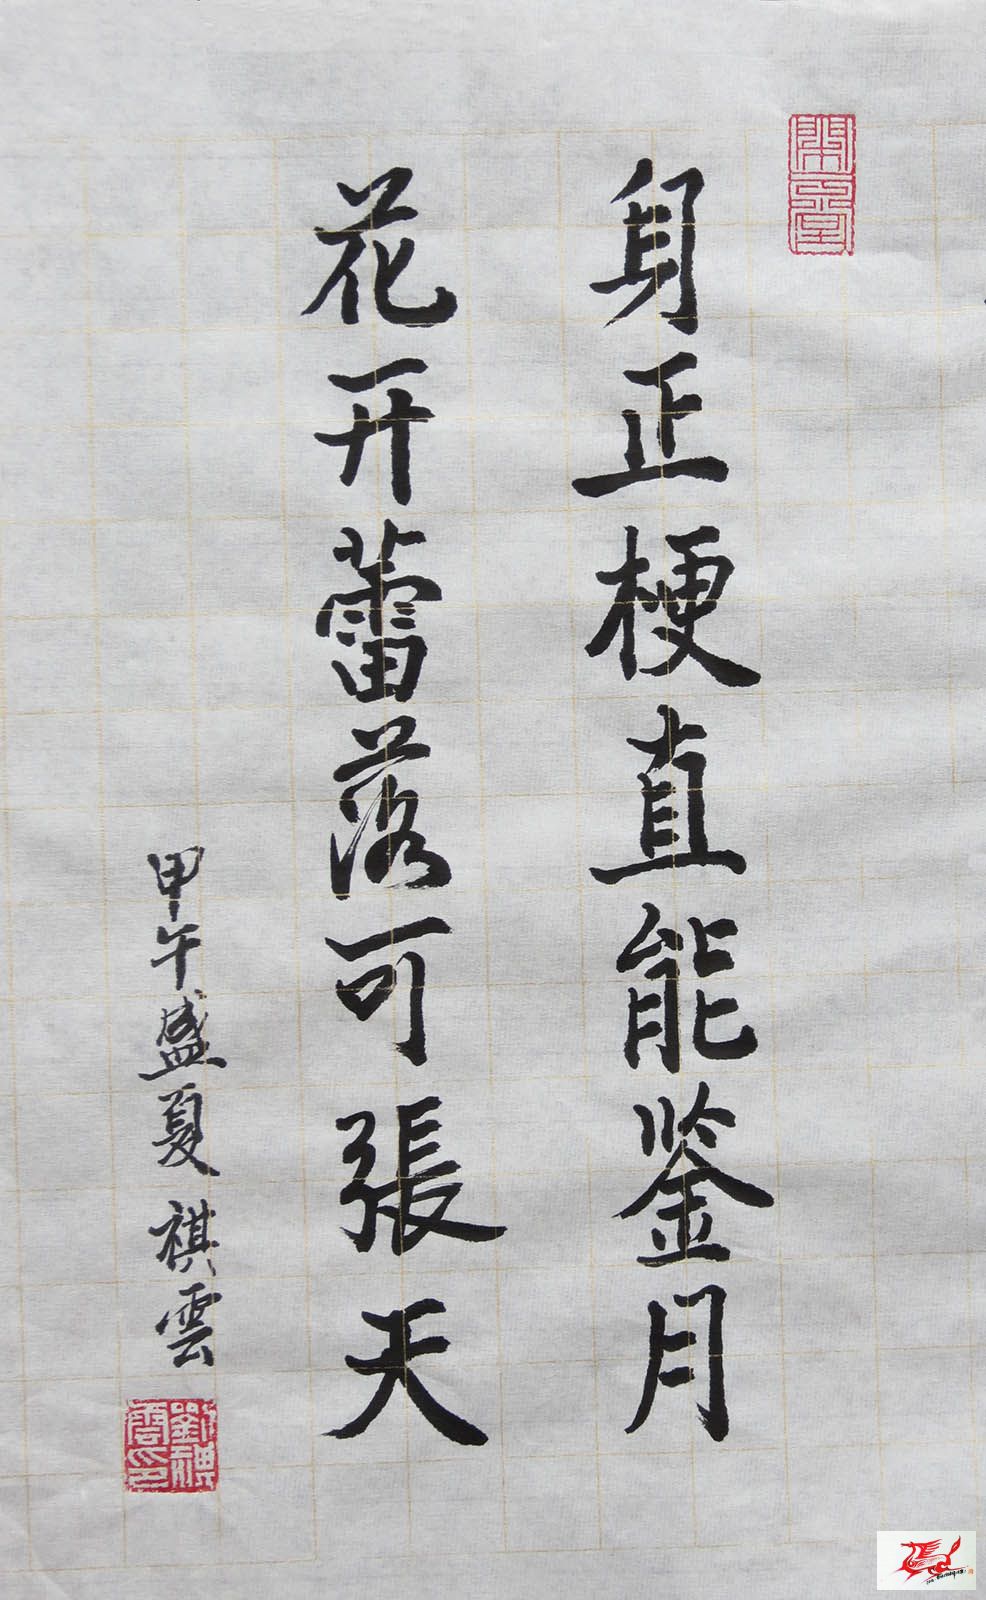 身正梗直能鉴月
花开蕾落可張天
甲午盛夏 祺雲
劉祺雲印